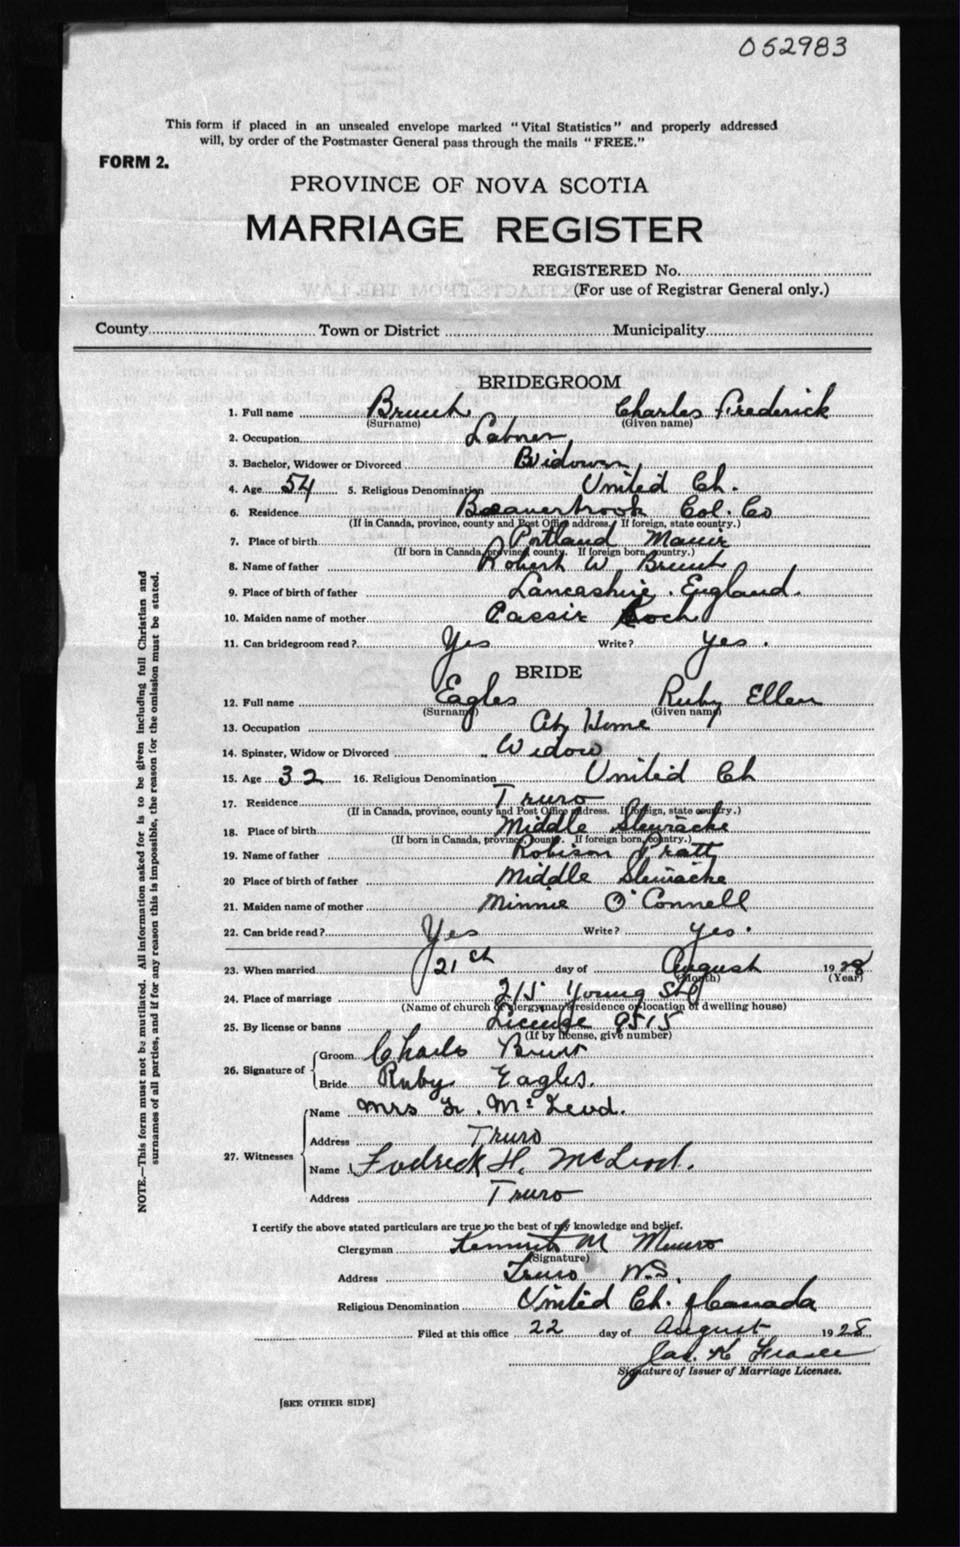 052983
This form if placed in an unsealed envelope marked "Vital Statistics" and properly addressed
will, by order of the Postmaster General pass through the mails "FREE."
FORM 2.
PROVINCE OF NOVA SCOTIA
MARRIAGE REGISTER
REGISTERED No.
(For use of Registrar General only.)
County Town or District Municipality
BRIDEGROOM
1. Full name Charles Frederick
(Surname) (Given name)
2. Occupation
3. Bachelor, Widower or Divorced Widower
4. Age 54 5. Religious Denomination United Ch.
6. Residence Col. Co
(If in Canada, province, county and Post Office address. If foreign, state country.)
7. Place of birth Portland
(If born in Canada, province, county. If foreign born, country.)
8. Name of father Robert W
9. Place of birth of father Lancashire, England.
10. Maiden name of mother Koch
11. Can bridegroom read? Yes Write? yes.
BRIDE
12. Full name Eagles Ruby Ellen
(Surname) (Given name)
13. Occupation At Home
14. Spinster, Widow or Divorced Widow
15. Age 32 16. Religious Denomination United Ch
17. Residence Truro
(If in Canada, province, county and Post Office address. If foreign, state country.)
18. Place of birth Middle
(If born in Canada, province, county. If foreign born, country.)
19. Name of father Pratt
20 Place of birth of father Middle
21. Maiden name of mother Minnie O'Connell
22. Can bride read? Yes Write? yes.
23. When married 21st day of August 1928
(Month) (Year)
24. Place of marriage 215 Young St
(Name of church or clergyman's residence or location of dwelling house)
25. By license or banns License 9515
(If by license, give number)
26. Signature of
Groom Charles
Bride Ruby Eagles.
27. Witnesses
Name Mrs McLeod.
Address Truro
Name H. McLeod.
Address Truro
I certify the above stated particulars are true to the best of my knowledge and belief.
Clergyman Kenneth M Munro
(Signature)
Address Truro N.S.
Religious Denomination United Ch. of Canada
Filed at this office 22 day of August 1928
Signature of Issuer of Marriage Licenses.
[SEE OTHER SIDE]
NOTE.—This form must not be mutilated. All information asked for is to be given including full Christian and
surnames of all parties, and if for any reason this is impossible, the reason for the omission must be stated.